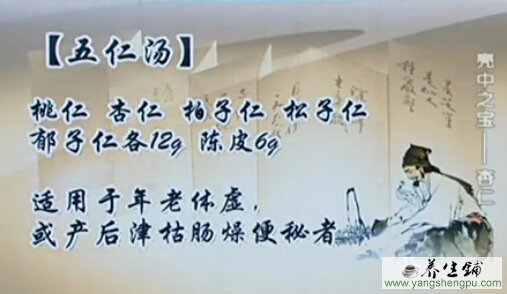 【五仁汤】
桃仁 杏仁 柏子仁 松子仁
郁子仁各12g 陈皮6g
适用于年老体虚，
或产后津枯肠燥便秘者
壳中之宝——杏仁
养生铺
www.yangshengpu.com